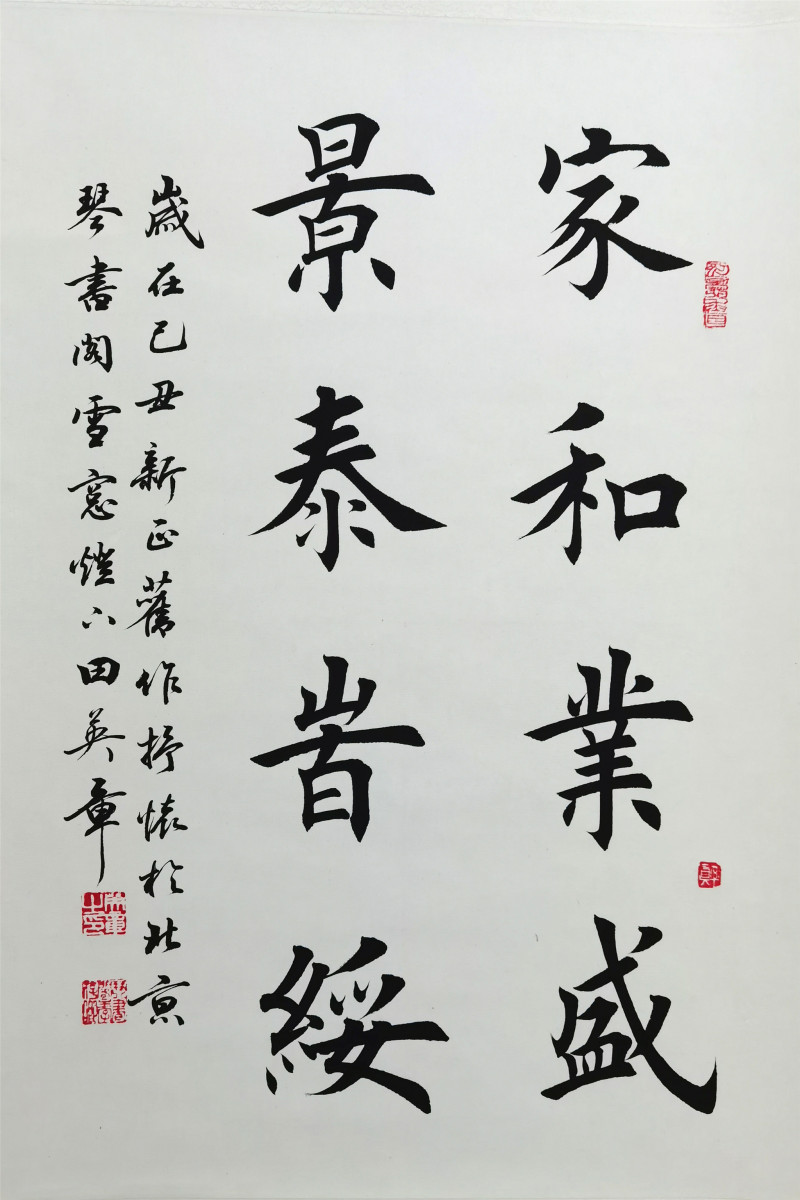 家和業盛
景泰旹綏
歲在己丑新正舊作抒懷於北京
琴書閣雪窓燈下田英章